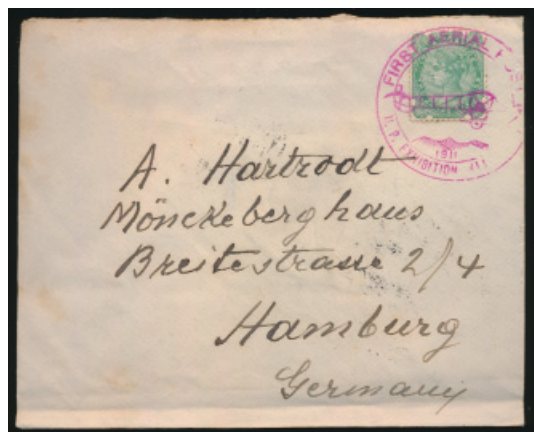 FIRST AERIAL
1911
U.P. EXHIBITION
A. Hartrodt
Mönckeberghaus
Breitestrasse 2/4
Hamburg
Germany